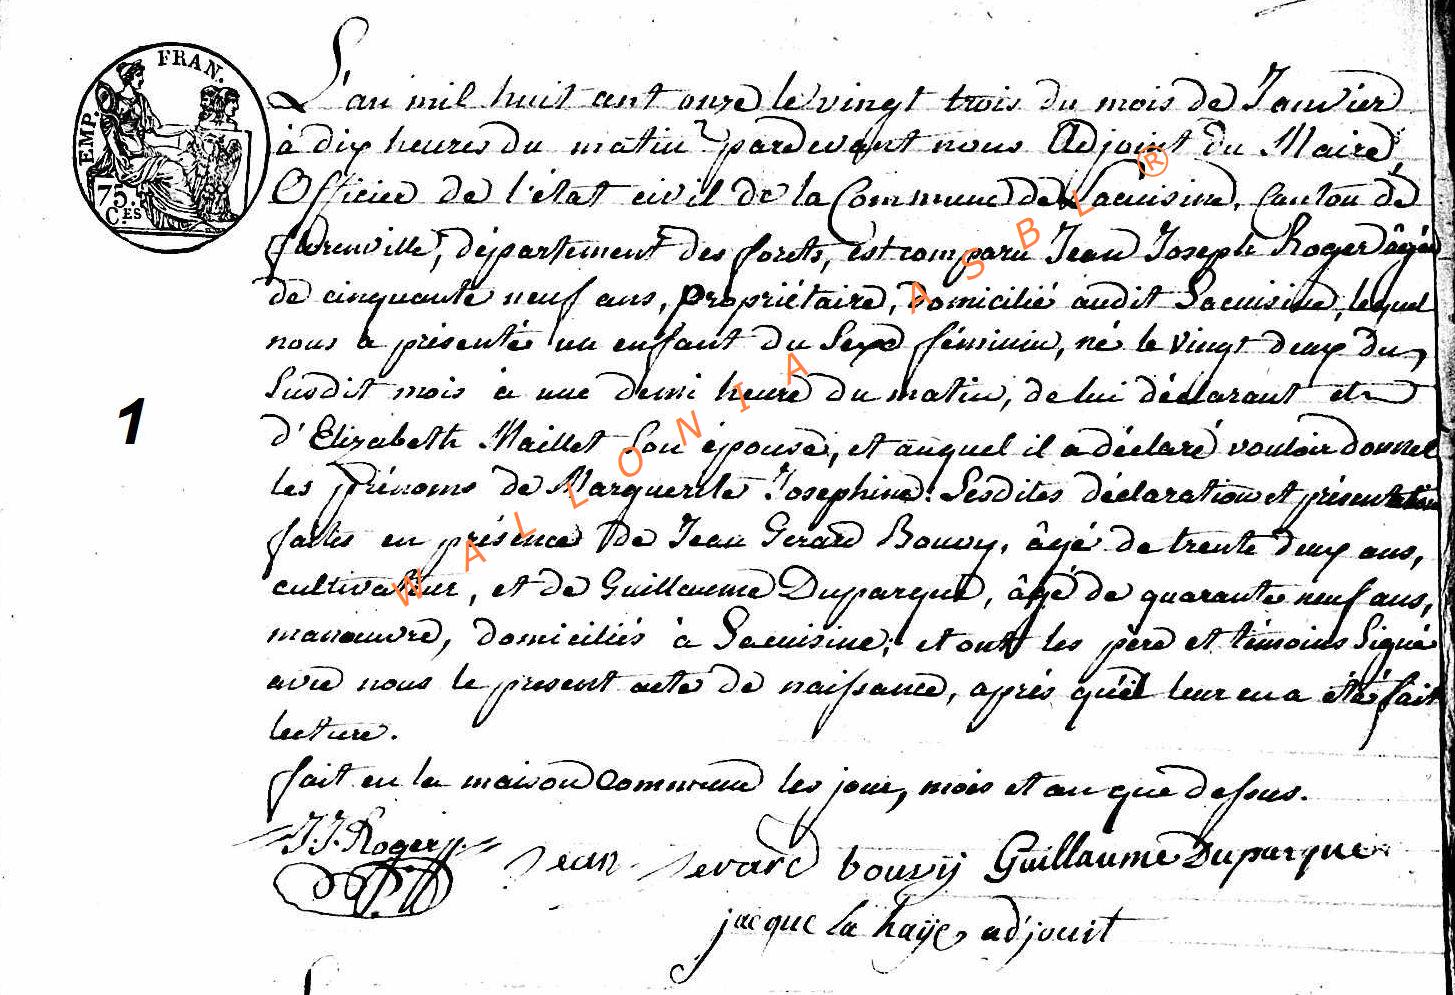 EMP. FRAN.
75.
C.ES
L'an mil huit cent onze le vingt trois du mois de Janvier
à dix heures du matin pardevant nous Adjoint du Maire,
Officier de l'état civil de la Commune de Lacuisine, Canton de
florenville, département des forets, est comparu Jean Joseph Roger âgé
de cinquante neuf ans, propriétaire, domicilié audit Lacuisine, lequel
nous a présenté un enfant du Sexe féminin, né le vingt deux du
susdit mois à une demi heure du matin, de lui déclarant et
d'Elizabeth Maillet son épouse, et auquel il a déclaré vouloir donner
les prénoms de Marguerite Josephine. Lesdites déclaration et présentation
faites en présence de Jean Gerard Bouvy, âgé de trente deux ans,
cultivateur, et de Guillaume Duparque, âgé de quarante neuf ans,
manœuvre, domiciliés à Lacuisine, et ont les père et témoins Signé
avec nous le present acte de naissance, après qu'il leur en a été fait
lecture.
fait en la maison Commune les jour, mois et an que dessus.
J.J. Roger
Jean Gerard bouvÿ Guillaume Duparque
jacque la haÿe adjouit
1
WALLONIA ASBL ®